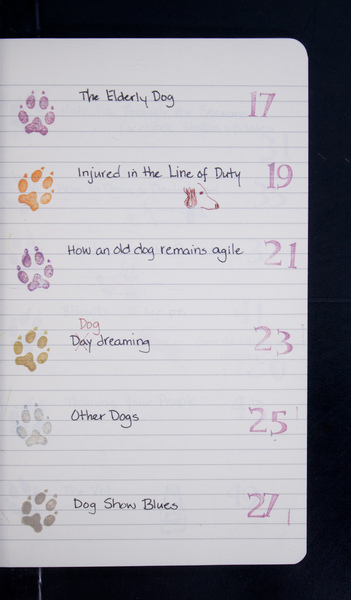 The Elderly Dog 17
Injured in the Line of Duty 19
How an old dog remains agile 21
Dog
Day dreaming 23
Other Dogs 25
Dog Show Blues 27